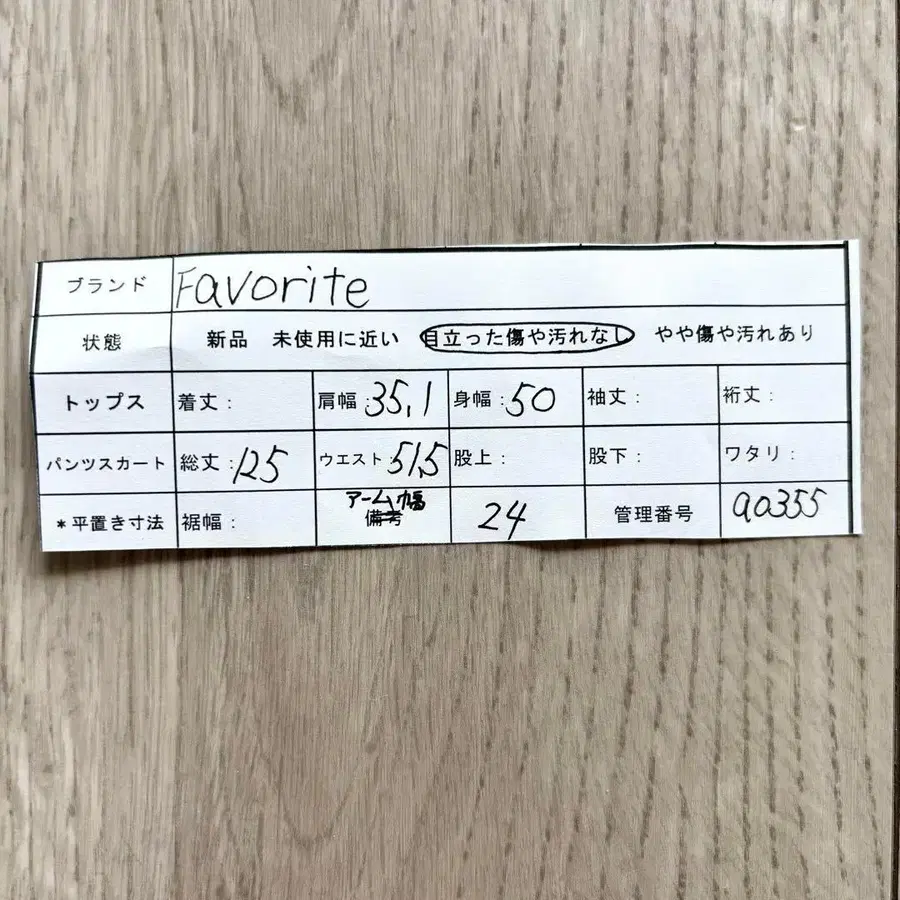 ブランド Favorite
状態 新品 未使用に近い 目立った傷や汚れなし やや傷や汚れあり
トップス 着丈: 肩幅:35,1 身幅:50 袖丈: 裄丈:
パンツスカート 総丈:125 ウエスト51,5 股上: 股下: ワタリ:
アーム幅
*平置き寸法 裾幅: 備考 24 管理番号 a0355